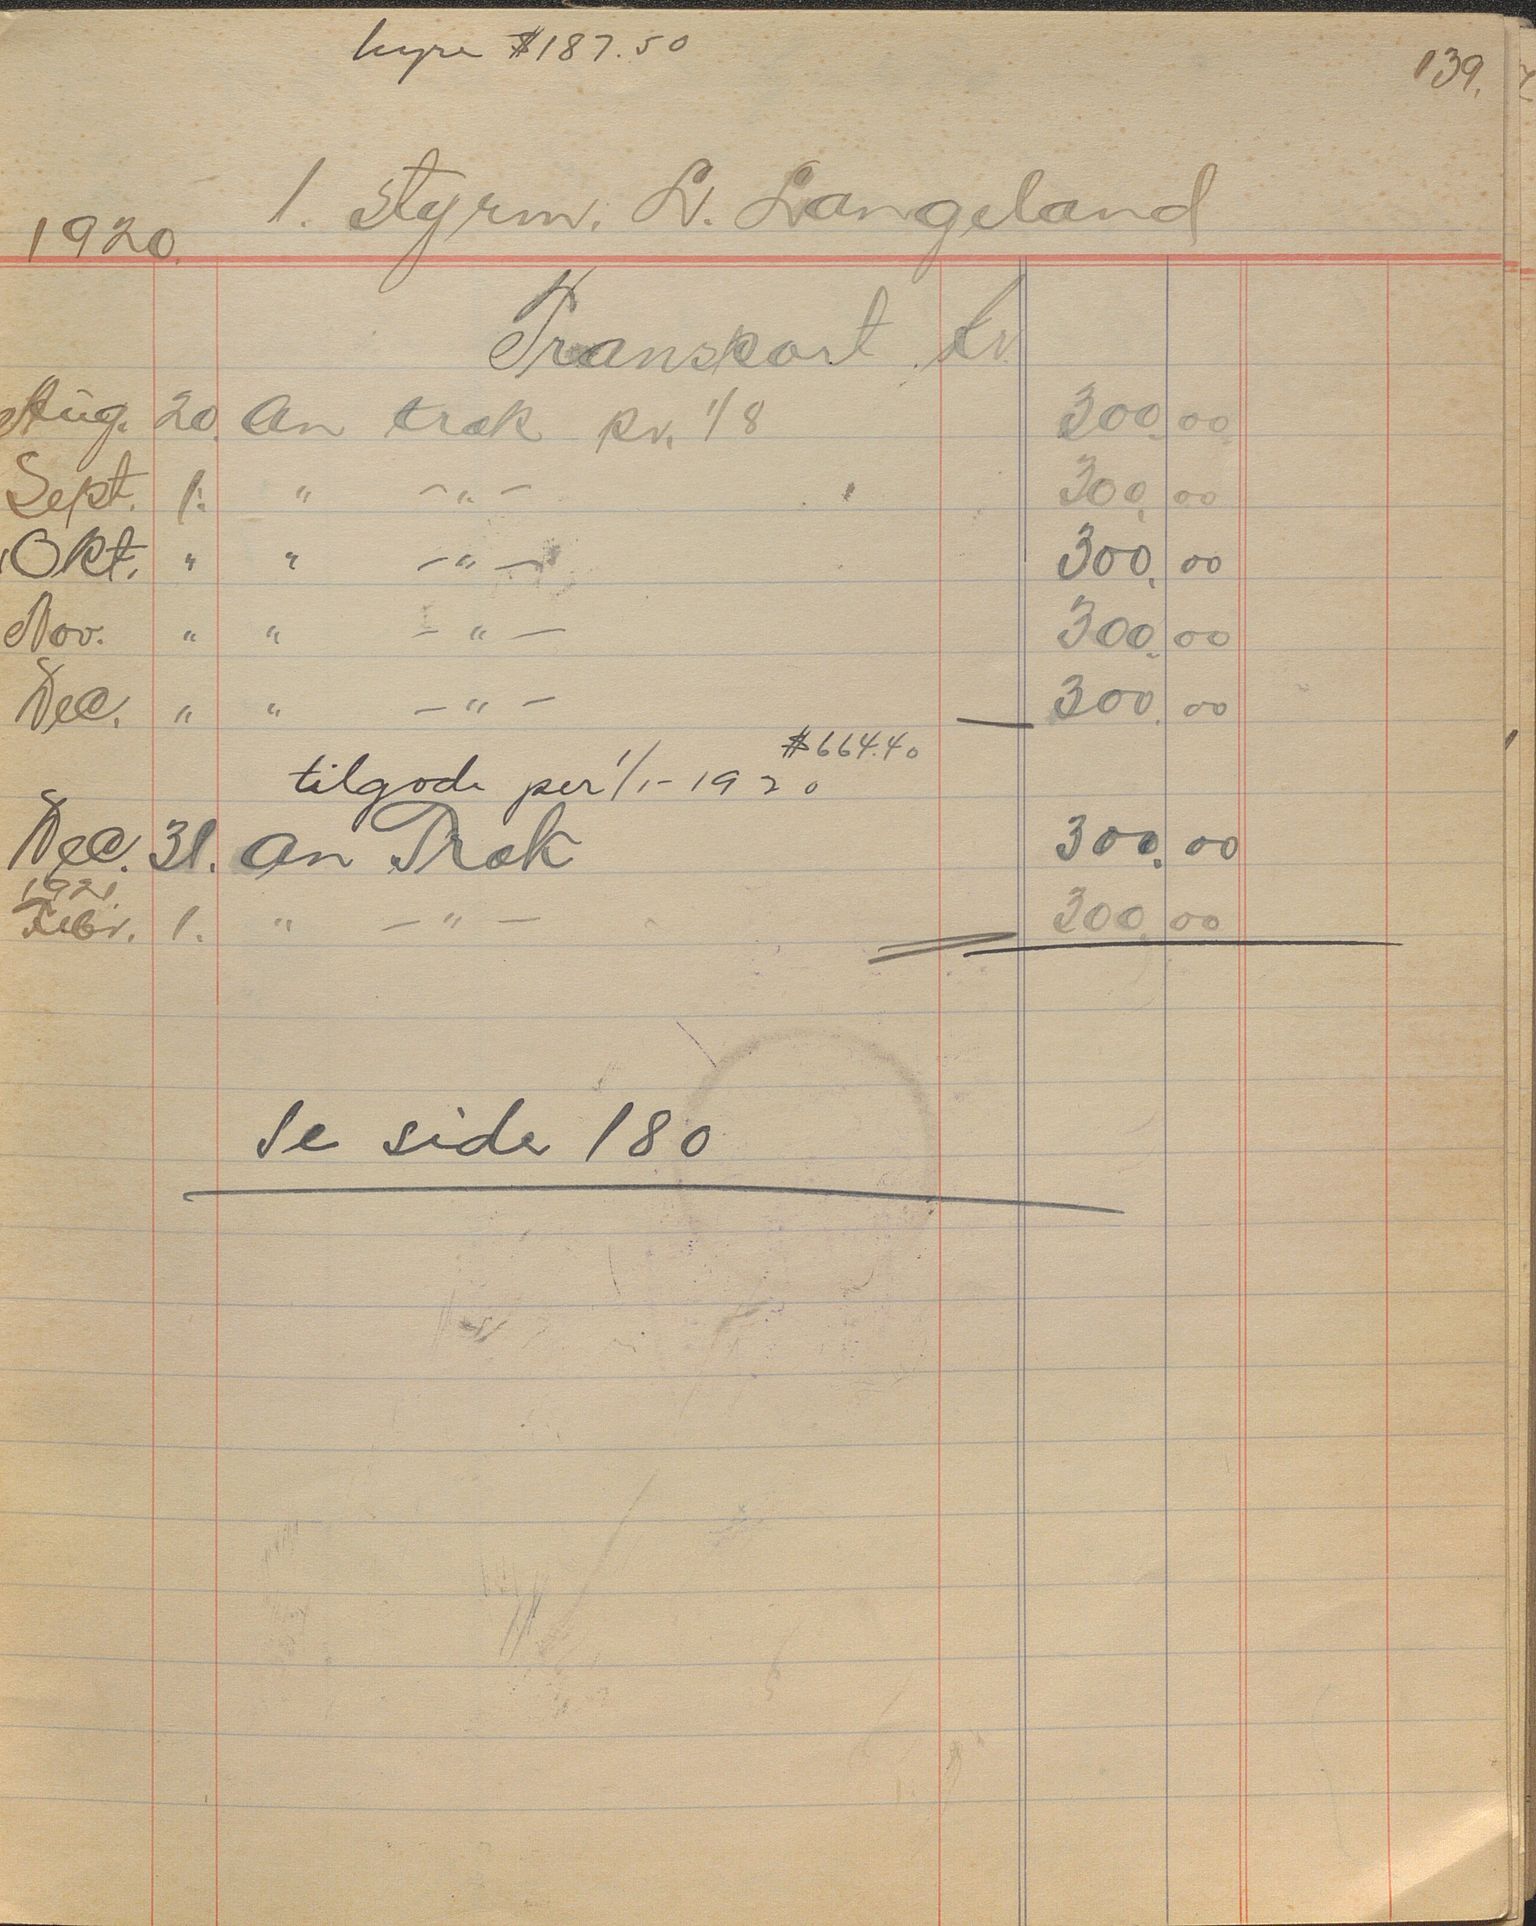 hyre $187.50
139.
1920. 1. Styrm. L. Langeland
Transport Kr
Aug. 20. An træk pr. 1/8 300.00
Sept. 1. " -"- 300.00
Okt. " " -"- 300.00
Nov. " " -"- 300.00
Dec. " " -"- 300.00
$664.40
tilgode per 1/1-1920
Dec. 31. An Træk 300.00
1921
Febr. 1. " -"- 300.00
Se side 180